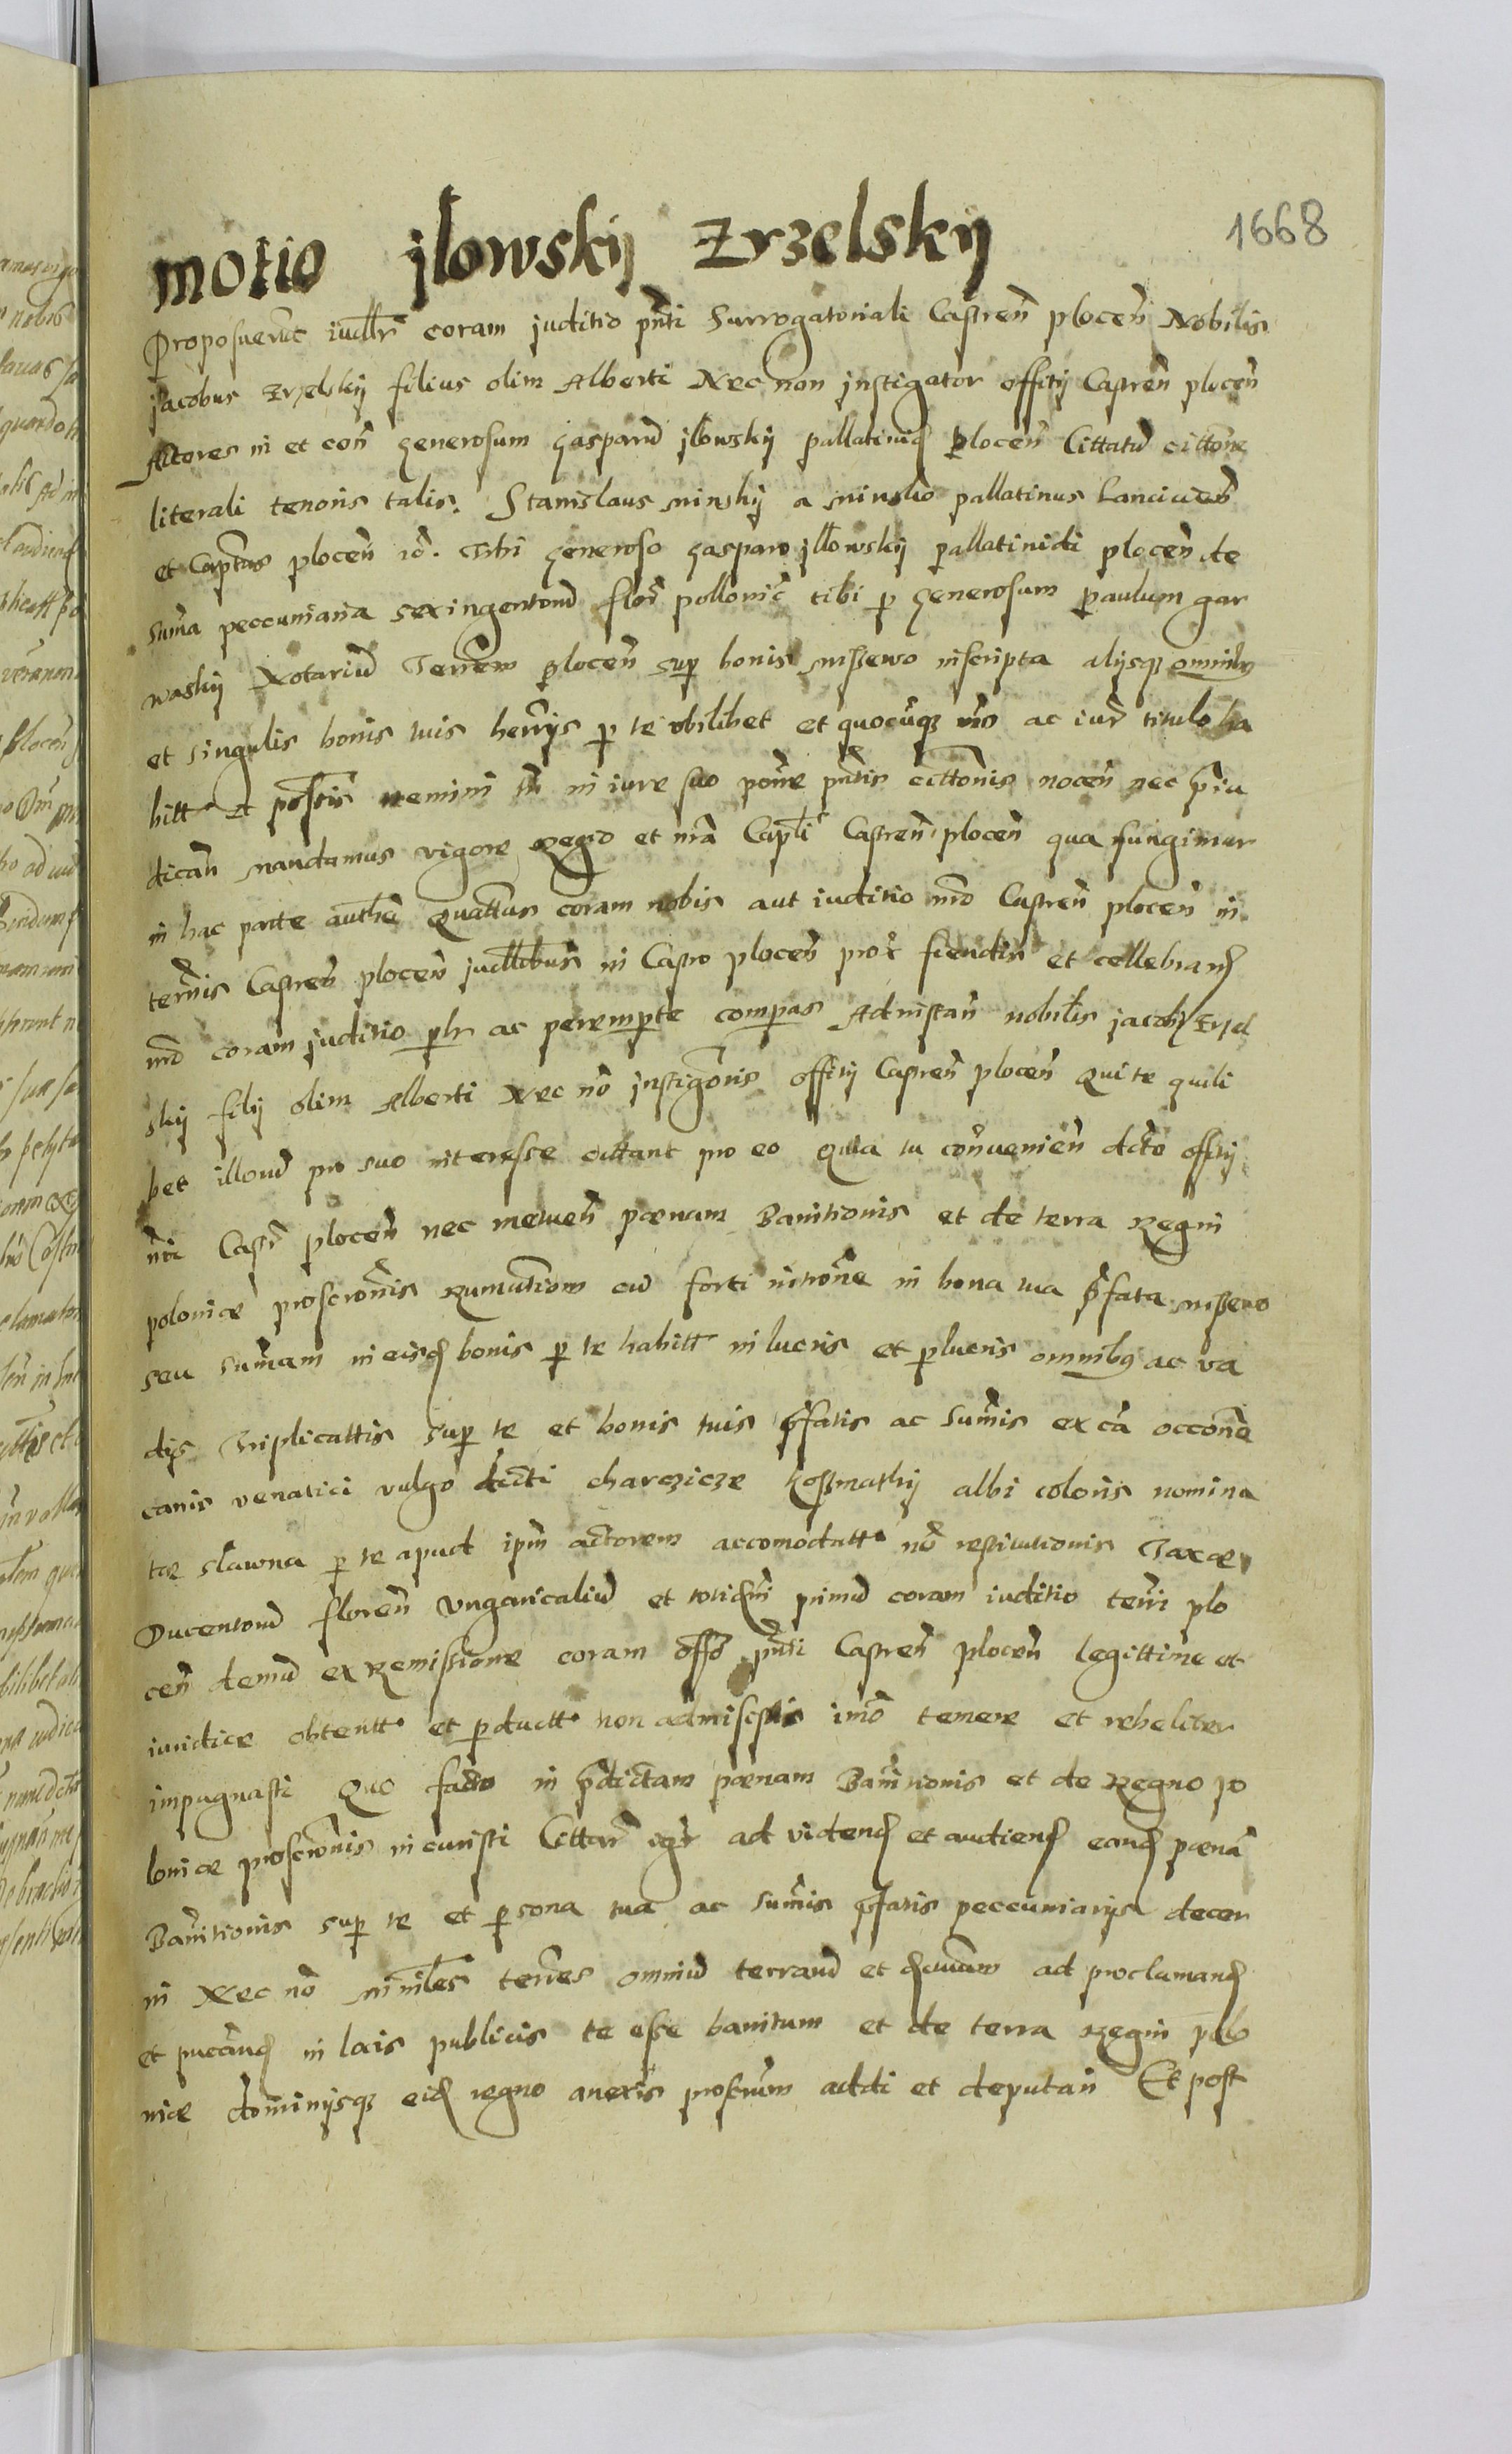 1668
motio jlowskij Zrzelskij
Proposuerũt iudlr̃ coram juditio pn̄ti Surrogatoriali Castren̄ plocen̄ Nobilis
jacobus Zrzelskij filius olim Alberti Nec non jnstigator offitij Castren̄ plocen̄
Actores in et con̄ generosum gasparũ jlowskij pallatinid plocen̄ Cittatũ cittōne
literali tenoris talis. Stanislaus minskij a minsko pallatinus Lancicien̄
et Capt̄us plocen̄ Tibi generoso gasparo jllowskij pallatinidi plocen̄ de
sum̄a peccuniaria sexingentorũ flor̄ pollonic̄ tibi p generosum paulum gar
waskij Notariũ Terren̄ plocen̄ sup bonis missewo inscripta alijsq omnibus
et singulis bonis tuis herr̄ijs p te vbilibet et quocũq ac iur̄ titulo ha
bitt et poss̄is nemini tn̄ in iure suo pn̄tis cittōnis nocen̄ nec p̄iu
dican̄ mandamus vigore Regio et nr̄a Capt̄li Castren̄ plocen̄ qua fungimur
in hac parte auth̄e Quattus coram nobis aut iuditio nr̄o Castren̄ plocen̄ in
term̄is Castren̄ plocen̄ judlibus in Castro plocen̄ fiendis et cellebrand
nr̄o coram juditio plr ac peremp̱te compas Ad instan̄ nobilis jacobi Zrzel
skij filij olim Alberti Nec nō jnstigōris offitij Castren̄ plocen̄ Qui te quili
bet illorũ pro suo interesse cittant pro eo Quia tu con̄uenien̄ dicto offitij
Castr̄ plocen̄ nec metuen̄ pœnam Banitionis et de terra Regni
poloniæ proscrōnis Rumationem cũ forti intrōne in bona tua p̄fata missewo
seu sum̄am in eisd bonis p te habitt in lucris et plucris omnibus ac va
dijs Triplicattis sup te et bonis tuis p̄fatis ac sum̄is ex cā occōne
canis venatici vulgo dicti charczicze kossmathij albi coloris nomina
tæ slawna p te apud ipm̄ actorem accomodatt nō restitutionis Taxæ
Ducentorũ floren̄ vngaricaliũ et totid̄m primũ coram iuditio terr̄i plo
cen̄ demũ ex Remissione coram offō pn̄ti Castren̄ plocen̄ legittime et
iuridice obtentt et pductt non admisistis imō temere et rebeliter
impugnasti Quo facto in p̄dictam pœnam Banitionis et de Regno po
loniæ proscrōnis incuristi Cittar̄ igr̄ ad videnđ et audienđ eanđ pœnā
Banitionis sup te et psona tua ac sum̄is p̄fatis peccuniarijs decer
ni Nec nō minr̄les terr̄es omniũ terrarũ et ad proclamanđ
et pucanđ in locis publicis te esse banitum et de terra Regni polo
niæ dominijsq eiđ regno anexis addi et deputari Et post